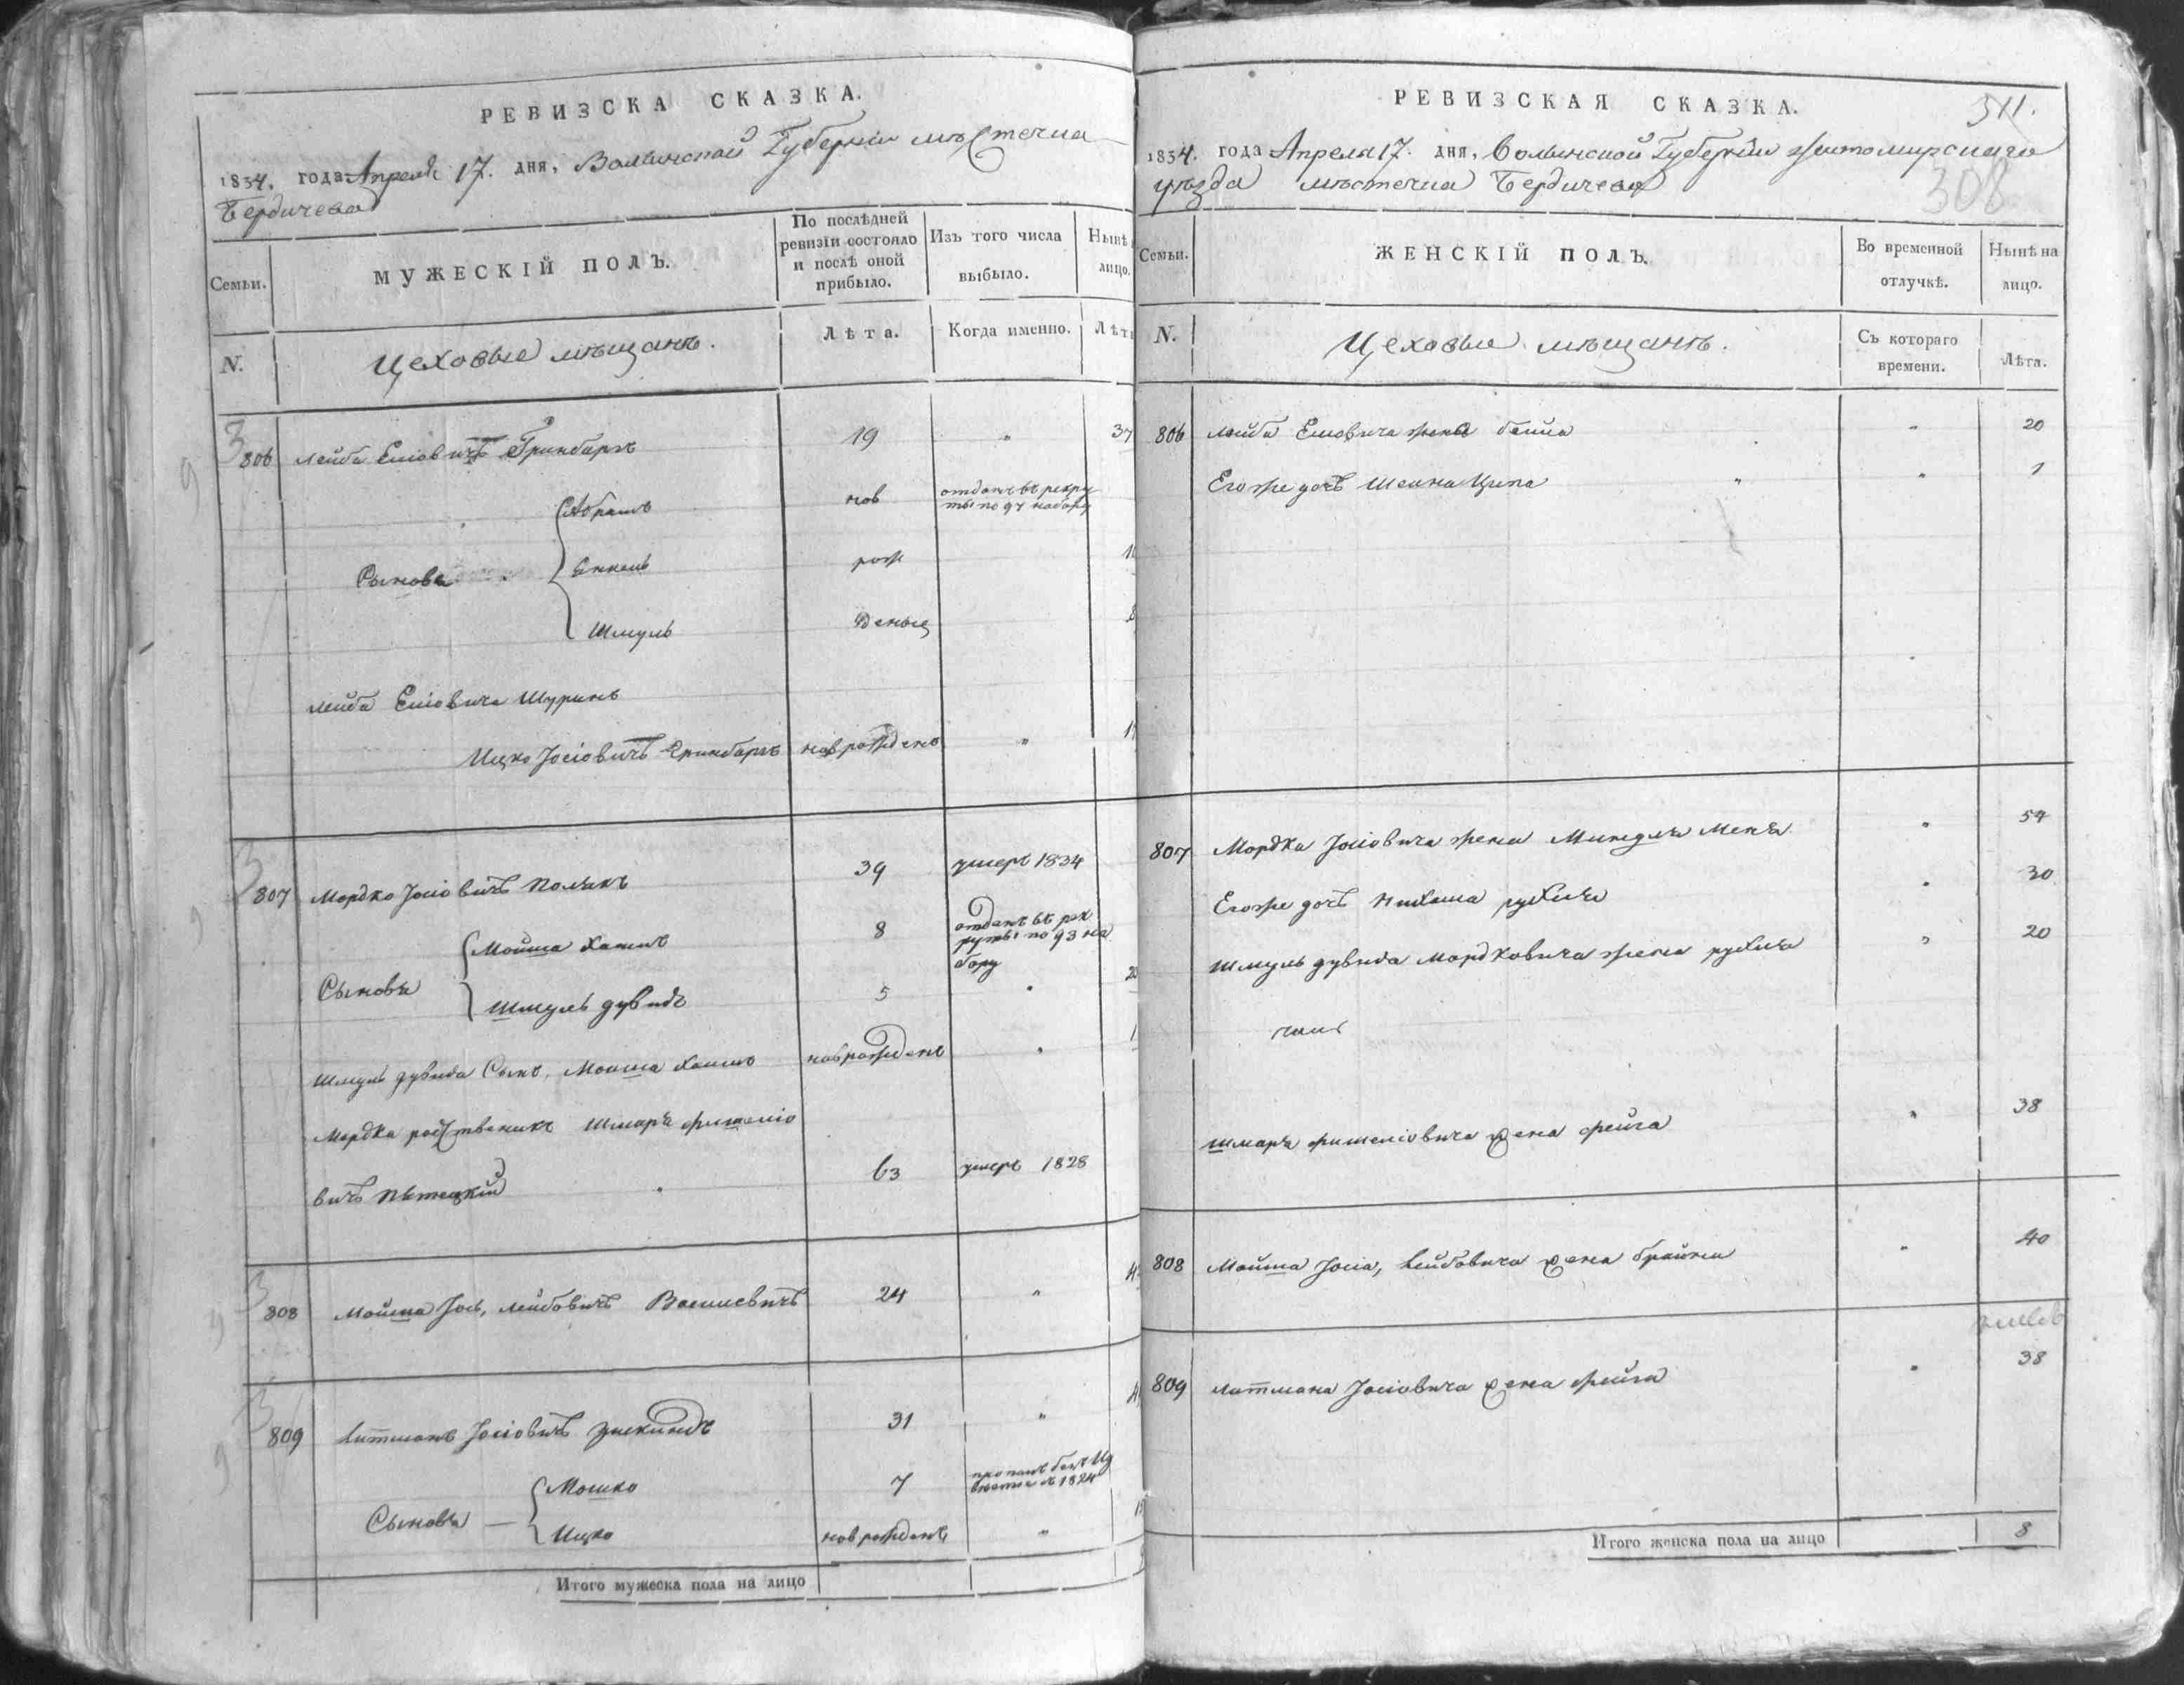 РЕВИЗСКА СКАЗКА.
1834. года Апреля 17. дня, Волынской Губернiи мѣстечка
Бердичева
Семьи.
МУЖЕСКIЙ ПОЛЪ.
По послѣдней
ревизiи состояло
и послѣ оной
прибыло.
Изъ того числа
выбыло.
Нынѣ
лицо.
N.
Цеховые мѣщане.
Лѣта.
Когда именно.
Лѣт
806 Лейба Еliовичъ Гринбаргъ 19 " 37
Абрамъ нов отданъ въ рекру
ты по 97 набору
Сыновья Янкель рож
Шмуль дены 8
Лейба Шуринъ
Ицко Iосiовичъ Гринбаргъ новрожденъ "
807 Мордко Iосiовичъ Полякъ 39 умеръ 1834
Мойша Хаимъ 8 отданъ въ рек
руты по 93 на
бору
Сыновья Шмуль Дувидъ 5 "
Шмуль Дувида Сынъ, Мойша Хаимъ новрожденъ "
Мордка родственикъ Шмаръя Фишелiо
вичъ 63 умеръ 1828
808 Мойша Iось, Лейбовичъ 24 "
809 Литманъ Iосiовичъ Зискиндъ 31 "
Мошко 7 пропалъ безъ Из
вѣстно 1824
Сыновья — Ицко новрожденъ "
Итого мужеска пола на лицо
РЕВИЗСКАЯ СКАЗКА.
311.
1834. года Апреля 17. дня, Волынской Губернiи Житомирскаго
уѣзда мѣстечка Бердичева
308
Семьи.
ЖЕНСКIЙ ПОЛЪ.
Во временной
отлучкѣ.
Нынѣ на
лицо.
N.
Цеховые мѣщане.
Съ котораго
времени.
Лѣта.
806 Лейба жена Бейла " 20
Егоже дочь Ципа " " 1
807 Мордка Iосiовича жена Миндля " 54
Егоже дочь Рухля " 30
Шмуль Дувида Мордковича жена Рухля " 20
Шмаръя Фишелiовича жена Фейга " 38
808 Мойша Iося, Лейбовича жена Брайна " 40
809 Литмана Iосiовича жена Фейга " 38
Итого женска пола на лицо 8